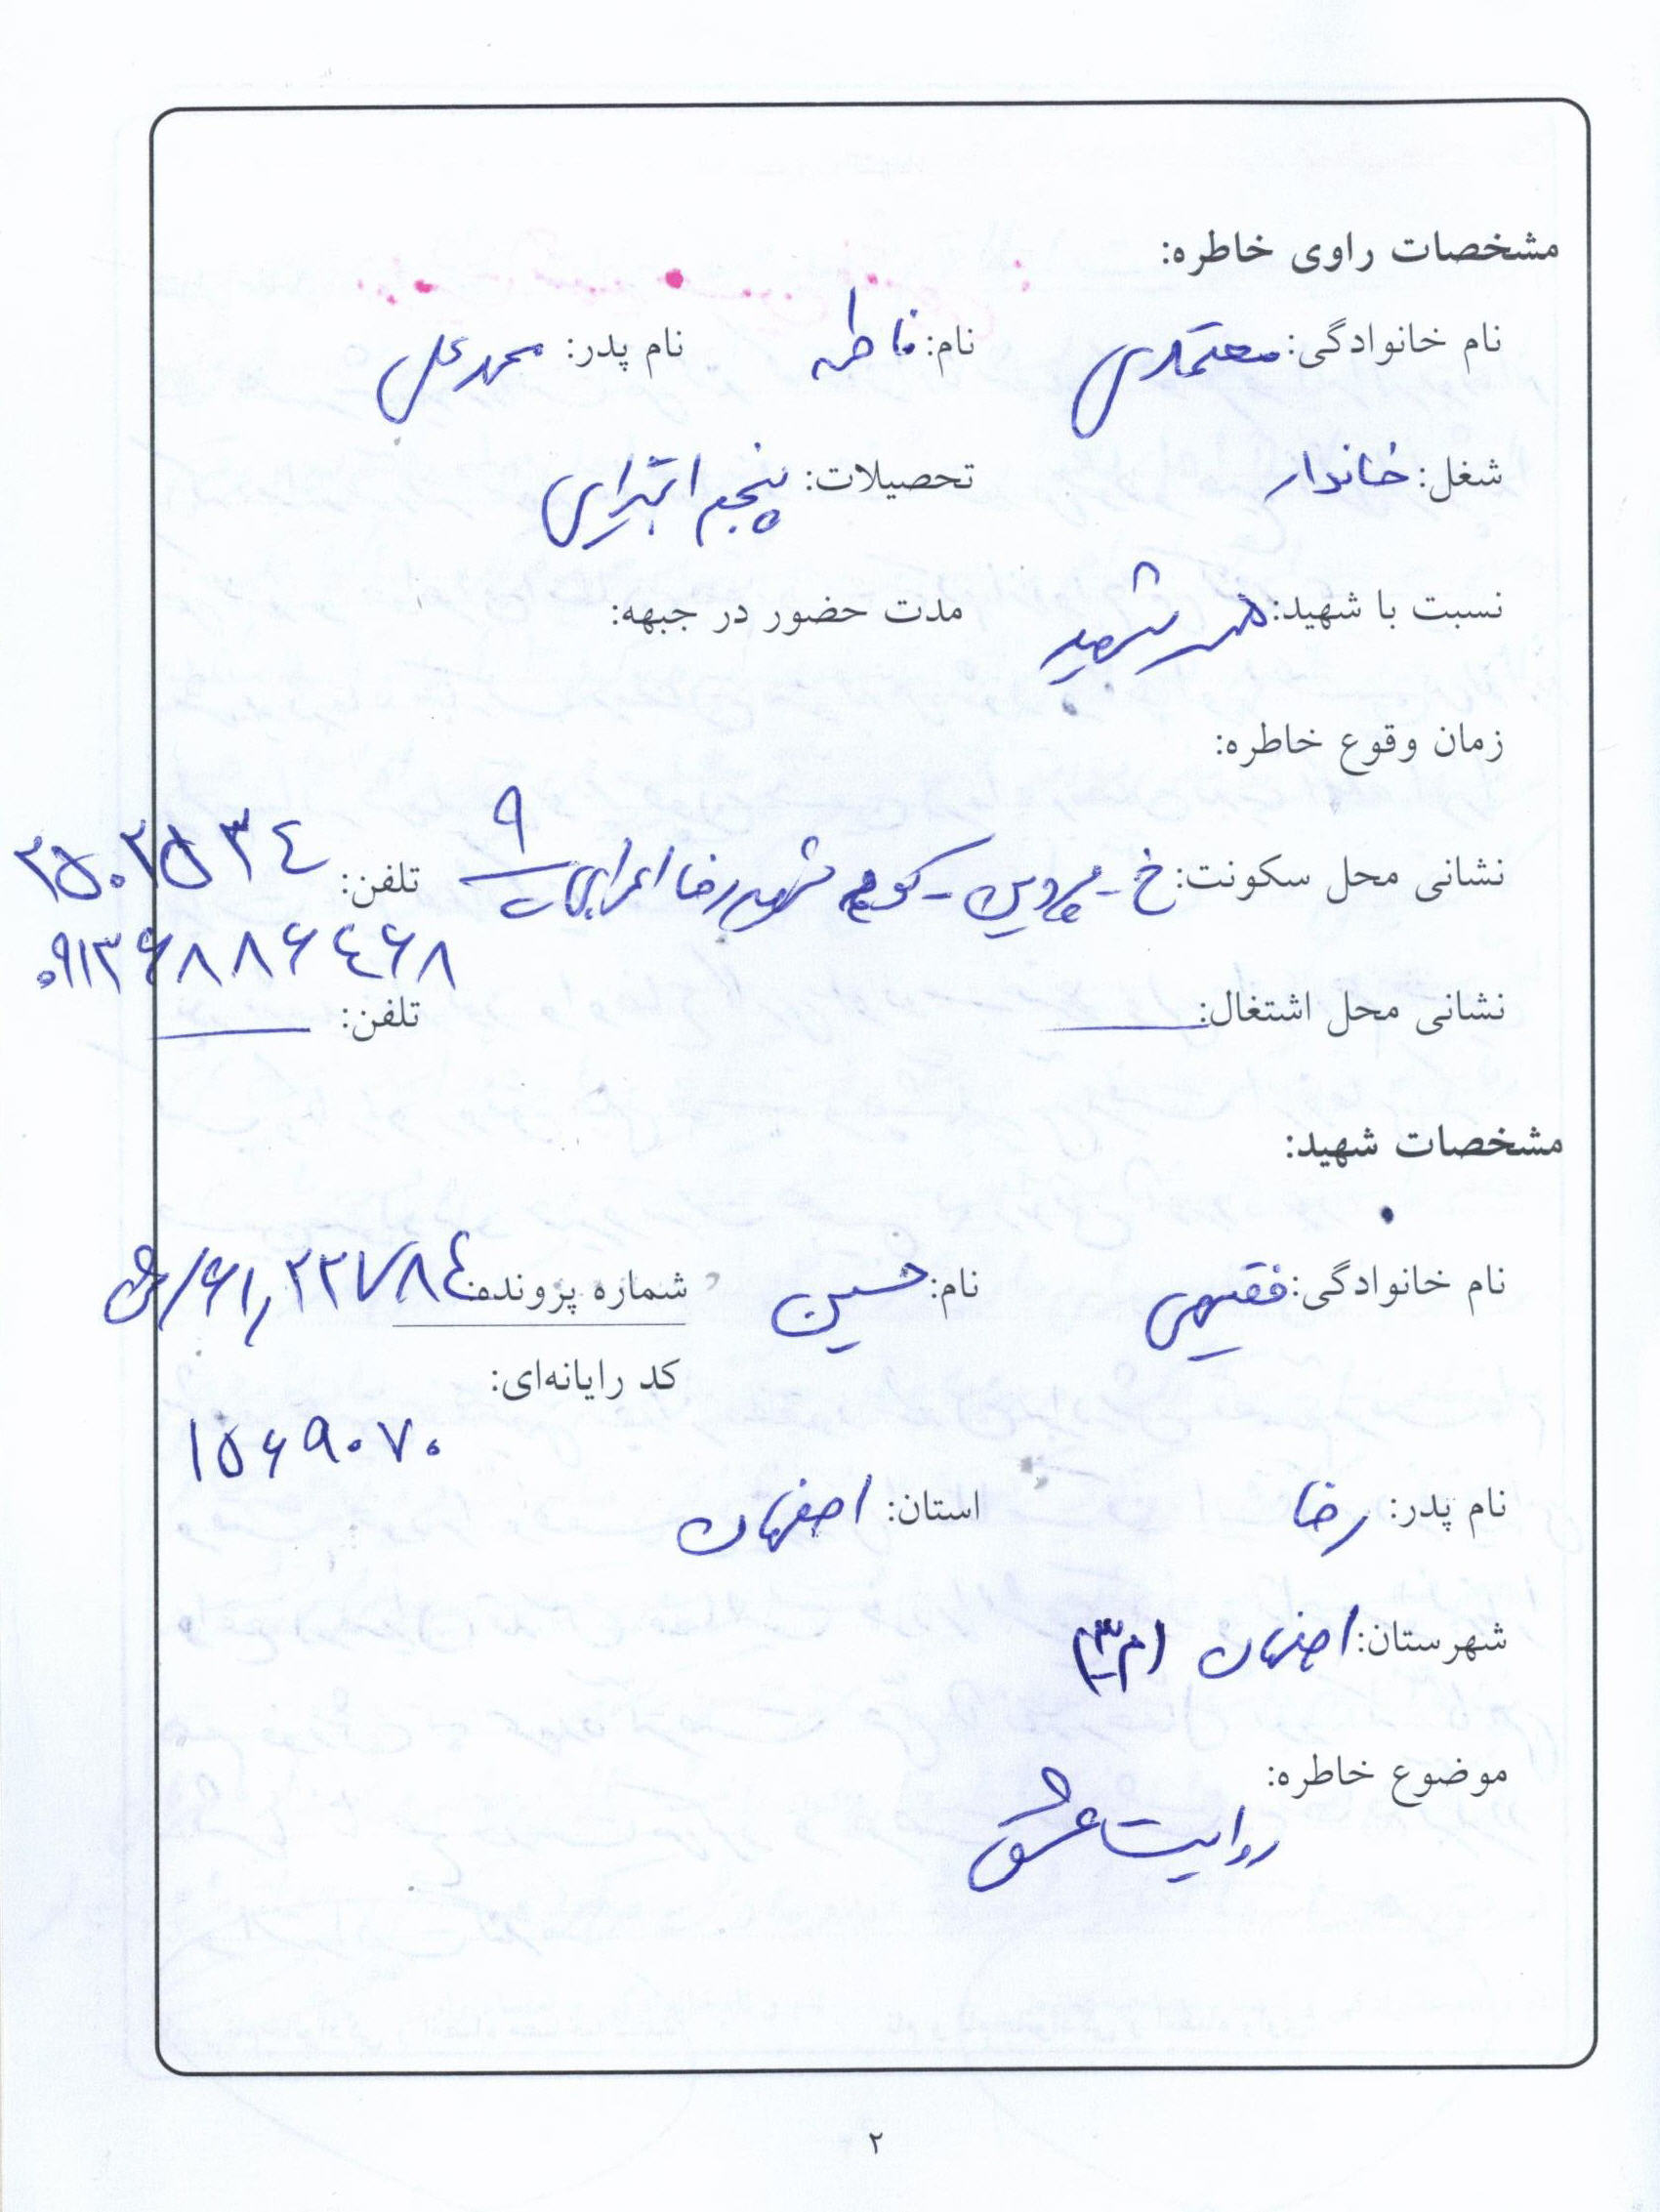 مشخصات راوی خاطره:
نام خانوادگی: معتمدی نام: فاطمه نام پدر: محمد علی
شغل: خاندار تحصیلات: پنجم ابتدایی
نسبت با شهید: همسر شهید مدت حضور در جبهه:
زمان وقوع خاطره:
نشانی محل سکونت: خ - پروین - کوچه شهید رضا اعرابی ۹ تلفن: ۲۵۰۲۵۳۴
۰۹۱۳۶۸۸۶۴۶۸
نشانی محل اشتغال: تلفن:
مشخصات شهید:
نام خانوادگی: فقیهی نام: حسین شماره پرونده: ۶۱٫۲۲۷۸۴/
کد رایانه‌ای:
۱۵۶۹۰۷۰
نام پدر: رضا استان: اصفهان
شهرستان: اصفهان (م۳)
موضوع خاطره:
روایت عشق
۲